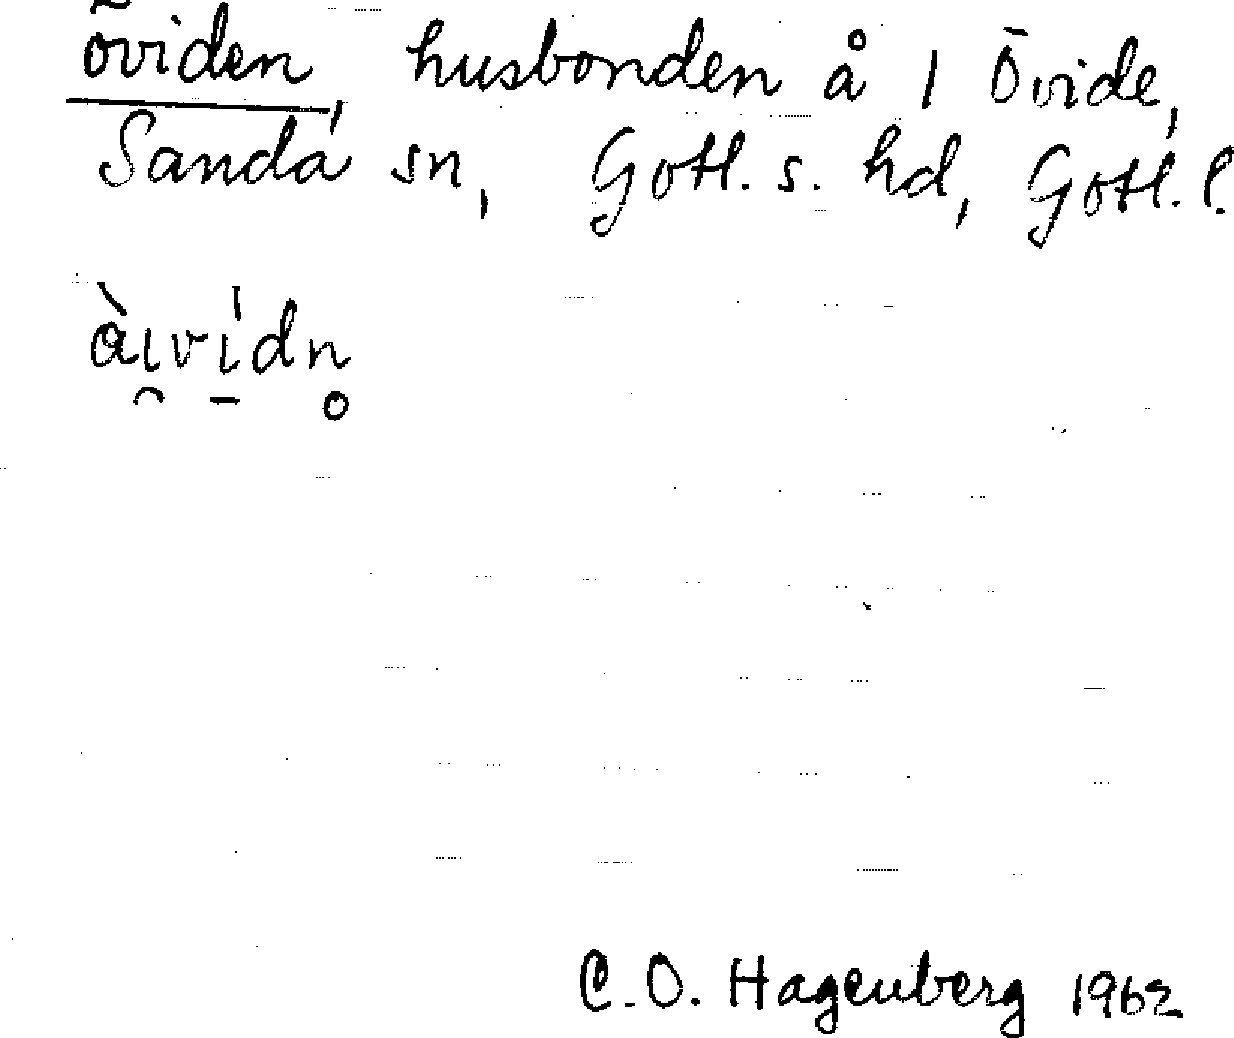 öviden, husbonden å 1 Övide,
Sanda sn, Gotl. s. hd, Gotl. l.
àı̯vı̱́dn̥
C.O. Hagenberg 1962